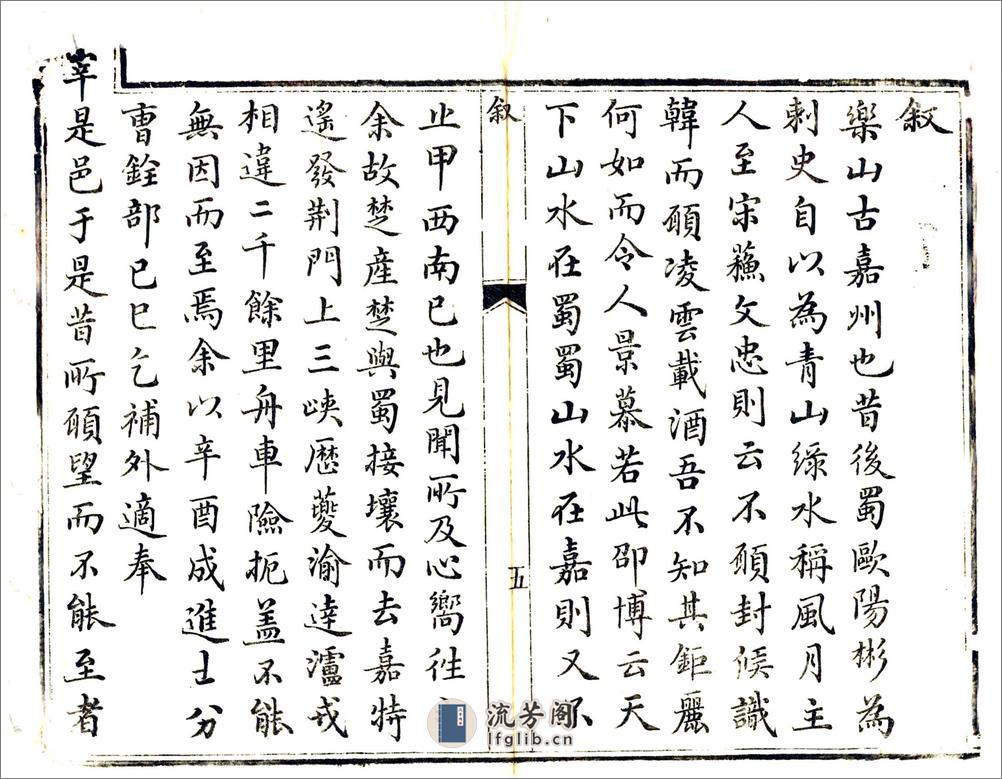 叙
樂山古嘉州也昔後蜀歐陽彬為
刺史自以為青山綠水稱風月主
人至宋蘓文忠則云不願封侯識
韓而願凌雲載酒吾不知其鉅麗
何如而令人景慕若此邵博云天
下山水在蜀蜀山水在嘉則又不
叙
五
止甲西南已也見聞所及心嚮徃
余故楚產楚與蜀接壤而去嘉特
遙發荆門上三峽歷夔渝達瀘戎
相違二千餘里舟車險扼盖不能
無因而至焉余以辛酉成進士分
曹銓部已巳乞補外適奉
宰是邑于是昔所願望而不能至者
流芳阁
lfglib.cn